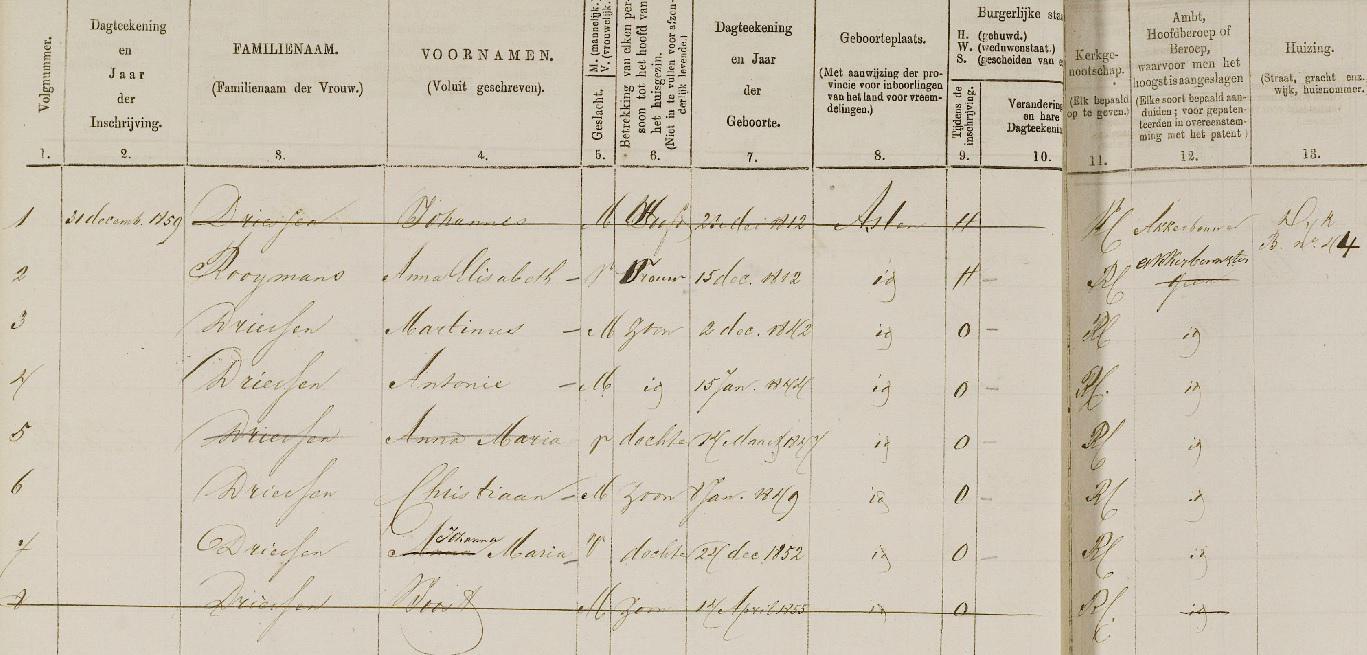 Volgnummer.
1.
Dagteekening
en
Jaar
der
Inschrijving.
2.
FAMILIENAAM.
(Familienaam der Vrouw.)
3.
VOORNAMEN.
(Voluit geschreven).
4.
Geslacht. M. (mannelijk.) V. (vrouwelijk.)
5.
Betrekking van elken per-
soon tot het hoofd van
het huisgezin.
(Niet in te vullen voor afzon-
derlijk levende.)
6.
Dagteekening
en Jaar
der
Geboorte.
7.
Geboorteplaats.
(Met aanwijzing der pro-
vincie voor inboorlingen
van het land voor vreem-
delingen.)
8.
Burgerlijke sta
H. (gehuwd.)
W. (weduwenstaat.)
S. (gescheiden van
Tijdens de
inschrijving.
9.
Verandering
en hare
Dagteekenin
10.
Kerkge-
nootschap.
(Elk bepaald
op te geven.)
11.
Ambt,
Hoofdberoep of
Beroep,
waarvoor men het
hoogst is aangeslagen
(Elke soort bepaald aan-
duiden; voor gepaten-
teerden in overeenstem-
ming met het patent)
12.
Huizing.
(Straat, gracht enz.
wijk, huisnommer.
13.
1 31 decemb. 1859 Driessen Johannes M Hoofd 1812 Asten H RC Akkerbouwer Dijk
B. no 44
2 Rooymans Anna Elisabeth - V Vrouw 15 dec. 1812 id H RC
3 Driessen Martinus - M Zoon 2 dec. 1842 id O - RC id
4 Driessen Antonie - M id 15 Jan. 1844 id O RC id
5 Driessen Anna Maria V dochter 14 Maart 1847 id O - RC id
6 Driessen Christiaan - M Zoon 8 Jan. 1849 id O - RC id
7 Driessen Johanna Maria V dochter 24 dec 1852 id O - RC id
8 Driessen Joost M Zoon 14 April 1855 id O RC id